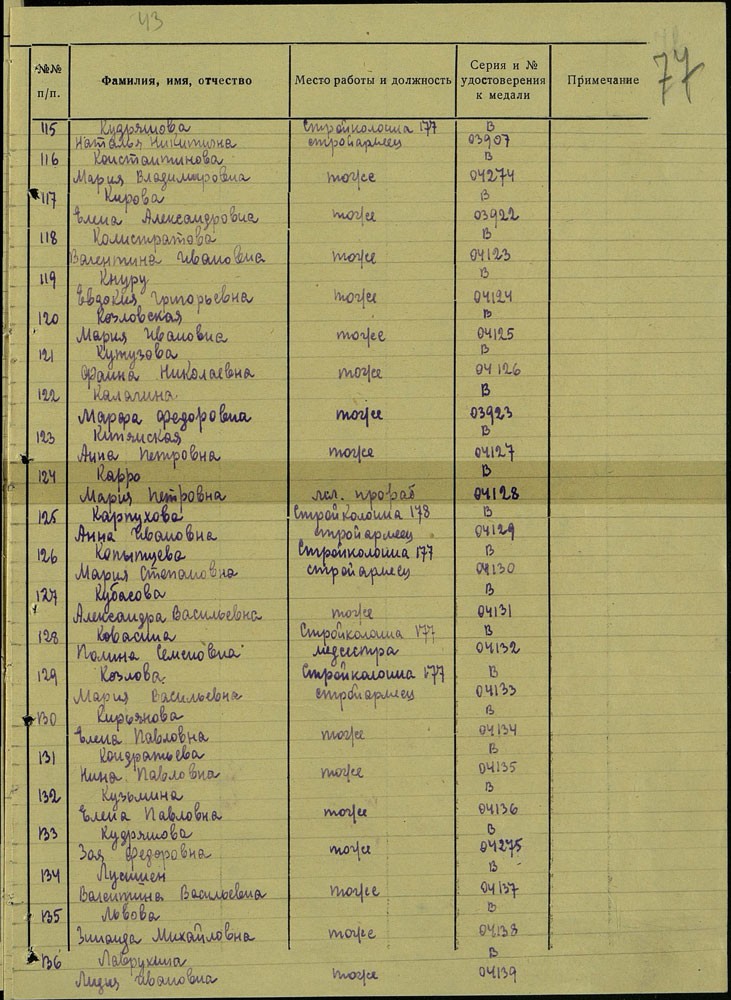 43
77
№№ п/п. Фамилия, имя, отчество Место работы и должность Серия и № удостоверения к медали Примечание
115 Кудряшова Стройколонна 177 В
Наталья Никитична стройармеец 03907
116 Константинова В
Мария Владимировна тоже 04274
117 Кирова В
Елена Александровна тоже 03922
118 Калистратова В
Валентина Ивановна тоже 04123
119 Кнуру В
Евдокия Григорьевна тоже 04124
120 Козловская В
Мария Ивановна тоже 04125
121 Кутузова В
Фаина Николаевна тоже 04126
122 Калагина В
Марфа Федоровна тоже 03923
123 В
Анна Петровна тоже 04127
124 Карро В
Мария Петровна прораб 04128
125 Карпухова Стройколонна 178 В
Анна Ивановна стройармеец 04129
126 Копытцева Стройколонна 177 В
Мария Степановна стройармеец 04130
127 Кубасова В
Александра Васильевна тоже 04131
128 Ковасина Стройколонна 177 В
Полина Семеновна медсестра 04132
129 Козлова Стройколонна 177 В
Мария Васильевна стройармеец 04133
130 Кирьянова В
Елена Павловна тоже 04134
131 Кондратьева В
Нина Павловна тоже 04135
132 Кузьмина В
Елена Павловна тоже 04136
133 Кудряшова В
Зоя Федоровна тоже 04275
134 В
Валентина Васильевна тоже 04137
135 Львова В
Зинаида Михайловна тоже 04138
136 Лаврухина В
Лидия Ивановна тоже 04139